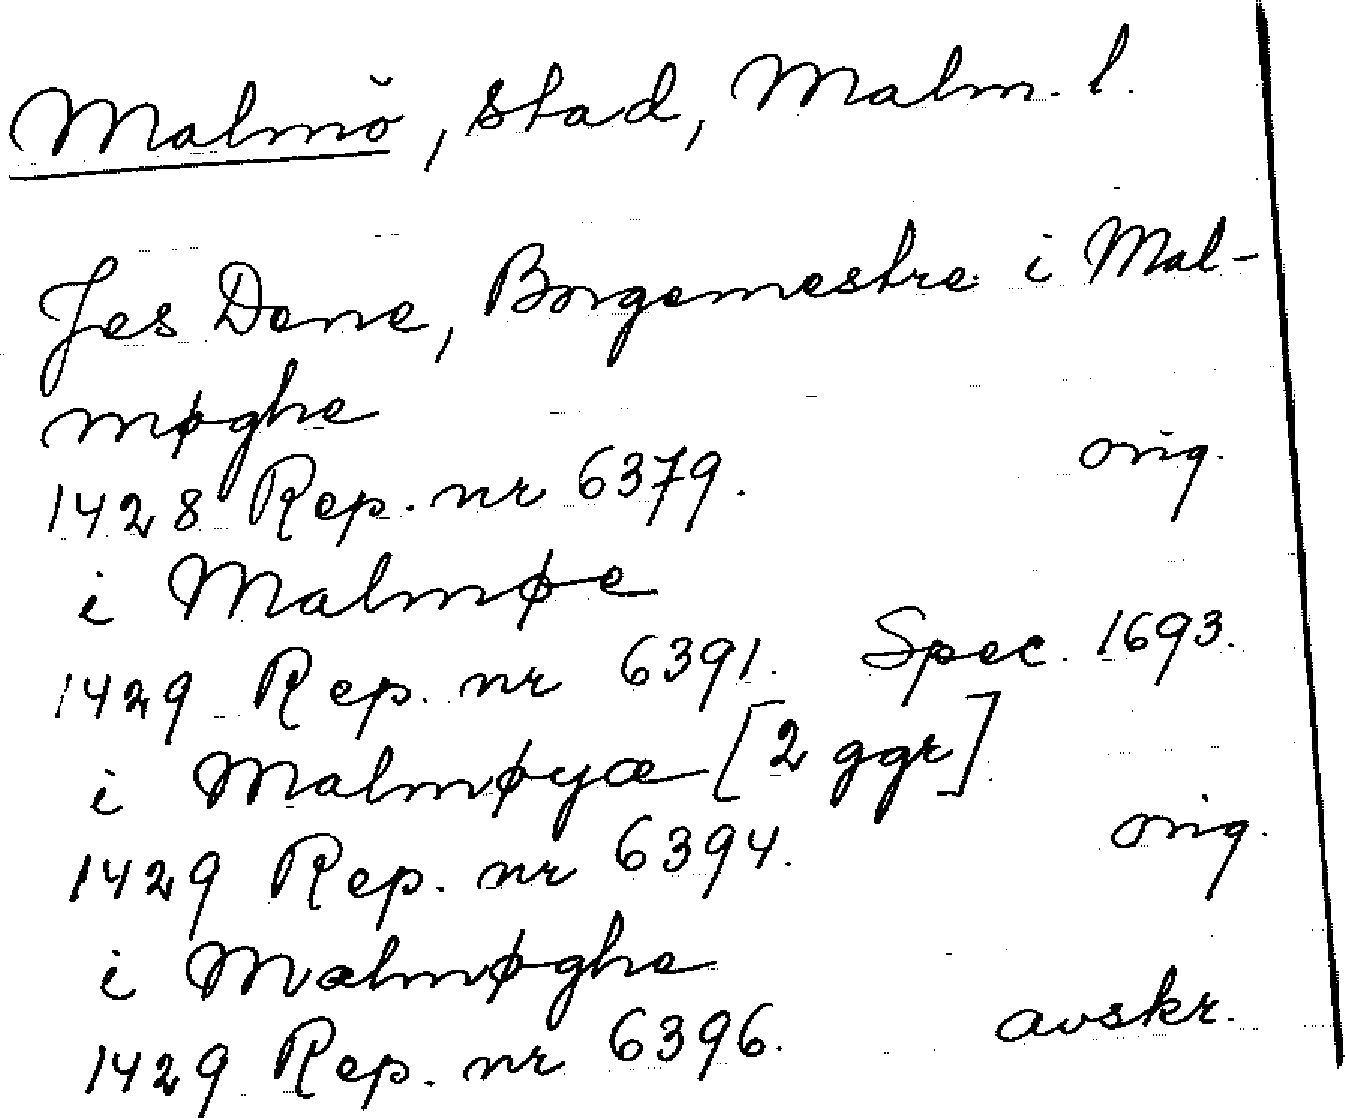 Malmö, stad, Malm. l.
Jes Dene, Borgemestre i Mal-
møghe
1428 Rep. nr 6379. orig.
i Malmøe
1429 Rep. nr 6391. Spec. 1693.
i Malmøyæ [2 ggr]
1429 Rep. nr 6394. orig.
i Mælmøghe
1429 Rep. nr 6396. avskr.